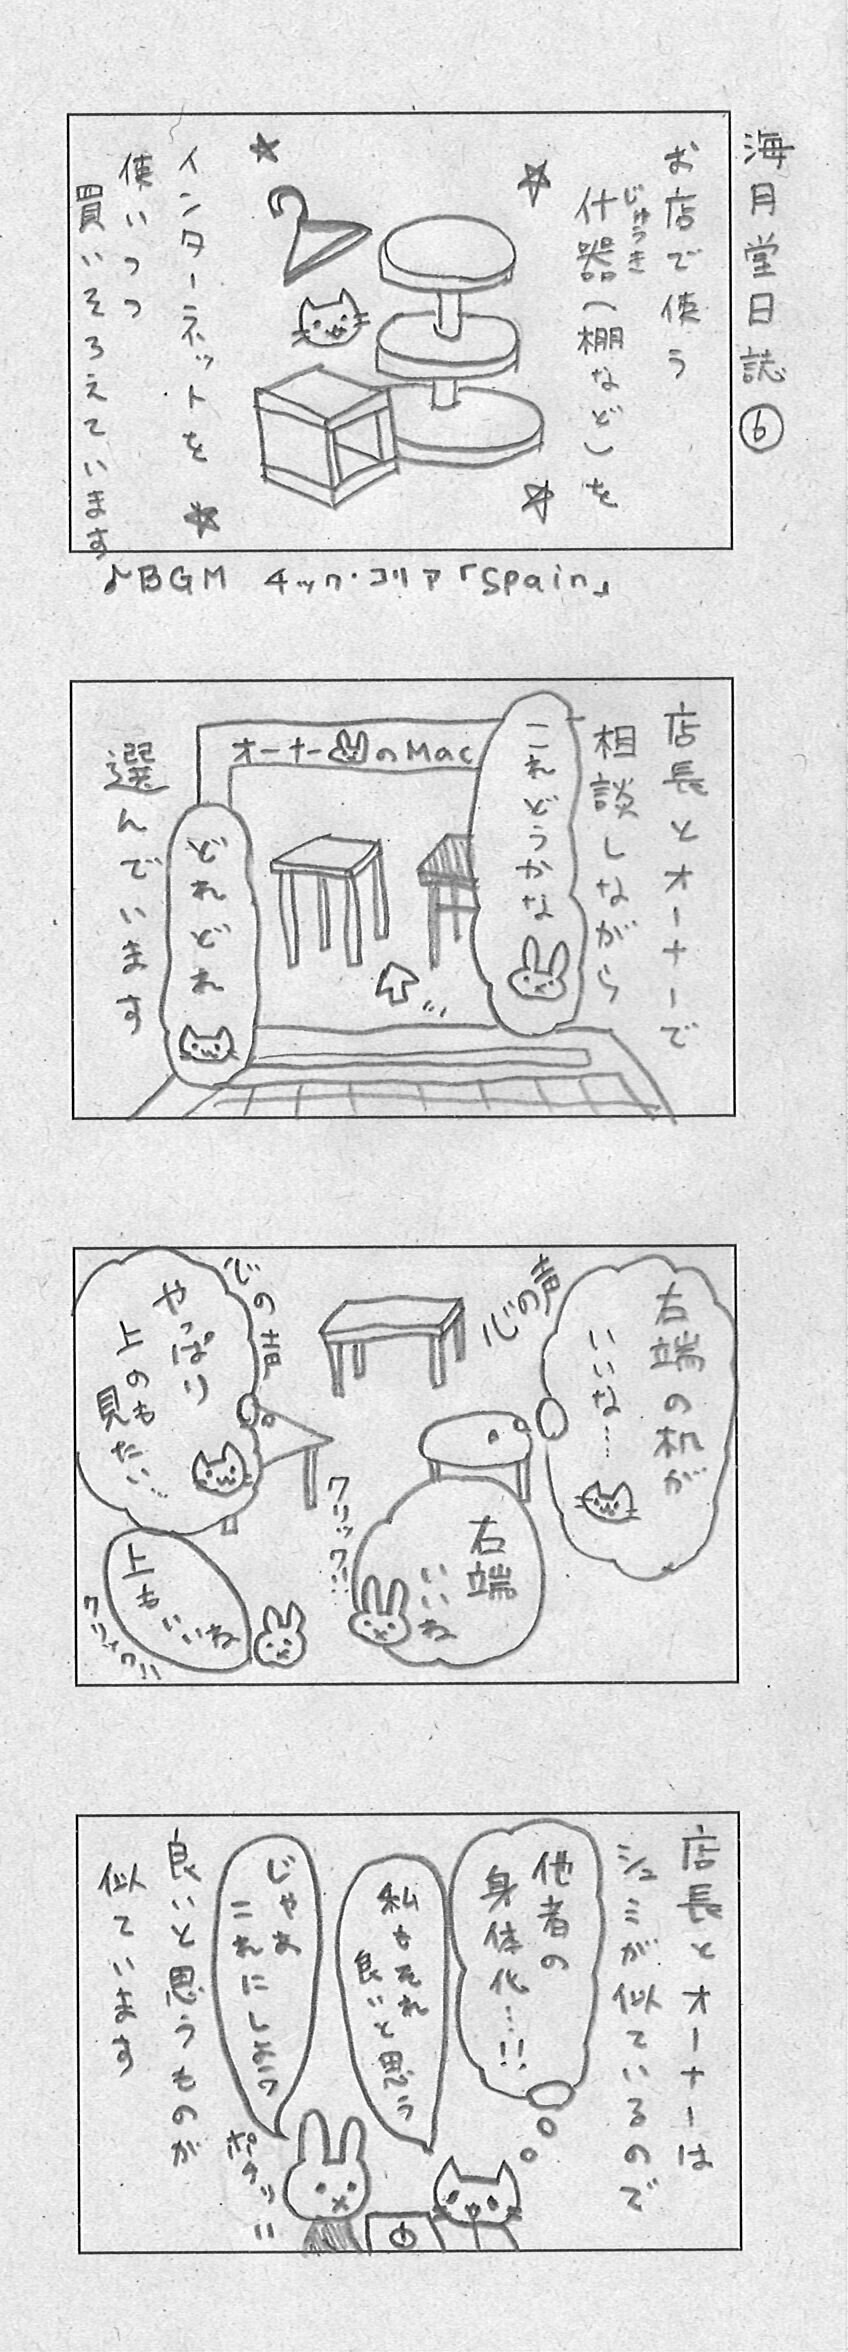 海月堂日誌⑥
お店で使う
什器(棚など)を
じゅうき
インターネットを
使いつつ
買いそろえています
♪BGM チック・コリア「Spain」
店長とオーナーで
相談しながら
これどうかな
オーナーのMac
どれどれ
選んでいます
右端の机が
いいな…
心の声
右端
いいね
クリック!!
心の声
やっぱり
上のも
見たい…
上もいいね
クリック!!
店長とオーナーは
シュミが似ているので
他者の
身体化…!!
私もそれ
良いと思う
じゃあ
これにしよう
ポチッ!!
良いと思うものが
似ています